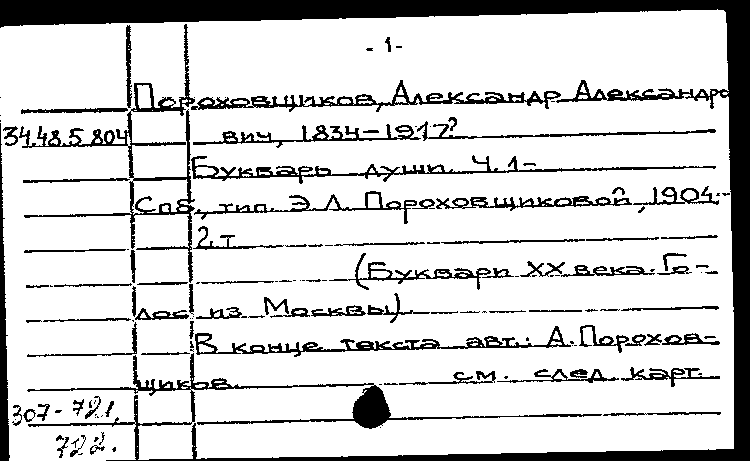 - 1 -
Пороховщиков, Александр Александро
34.48.5.804 вич, 1834-1917?
Букварь души. Ч. 1-
Спб., тип. Э.Л. Пороховщиковой, 1904.-
2 т
(Буквари XX века. Го-
лос из Москвы).
В конце текста авт.: А. Порохов-
щиков. см. след. карт.
307-721,
722.